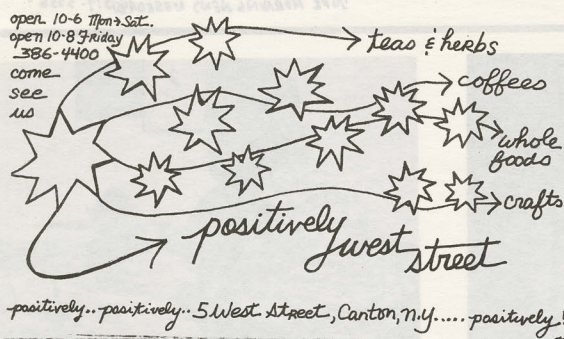 open 10-6 Mon→Sat.
open 10-8 Friday
386-4400
come
see
us
teas & herbs
coffees
whole
foods
crafts
positively
west
street
positively.. positively.. 5 West Street, Canton, n.y..... positively!